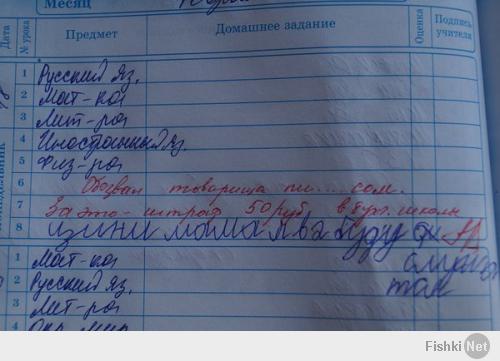 Месяц
Дата № урока Предмет Домашнее задание Оценка Подпись учителя
1 Русский яз.
2 Мат-ка
3 Лит-ра
4 Иностранный яз.
5 Физ-ра
6 Обозвал товарища пи.....сом.
7 За это - штраф 50 руб. в бухг. школы
8 изини мама я буду
1 Мат-ка
2 Русский яз.
3 Лит-ра
4 Окр. мир
Fishki.Net